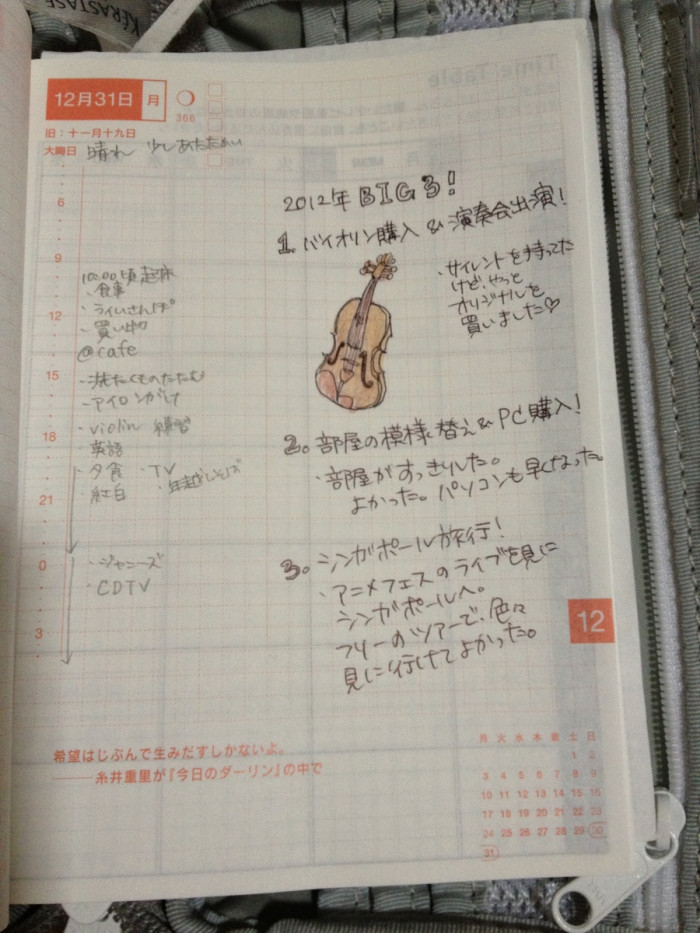 KÉRASTASE
Time Table
12月31日 月
366
旧：十一月十九日
大晦日 晴れ 少しあたたかい
6
9
12
15
18
21
0
3
10:00頃起床
・食事
・買い物
@cafe
・洗たくものたたむ
・アイロンがけ
・violin 練習
・英語
・夕食 ・TV
・紅白 ・年越しそば
・ジャニーズ
・CDTV
2012年 BIG3!
1. バイオリン購入 & 演奏会出演!
・サイレントを持ってた
けど、やっと
オリジナルを
買いました♡
2. 部屋の模様替え & PC購入!
・部屋がすっきりした。
よかった。パソコンも早くなった。
3. シンガポール旅行!
・アニメフェスのライブを見に
シンガポールへ。
フリーのツアーで、色々
見に行けてよかった。
12
希望はじぶんで生みだすしかないよ。
——糸井重里が『今日のダーリン』の中で
月 火 水 木 金 土 日
1 2
3 4 5 6 7 8 9
10 11 12 13 14 15 16
17 18 19 20 21 22 23
24 25 26 27 28 29 30
31